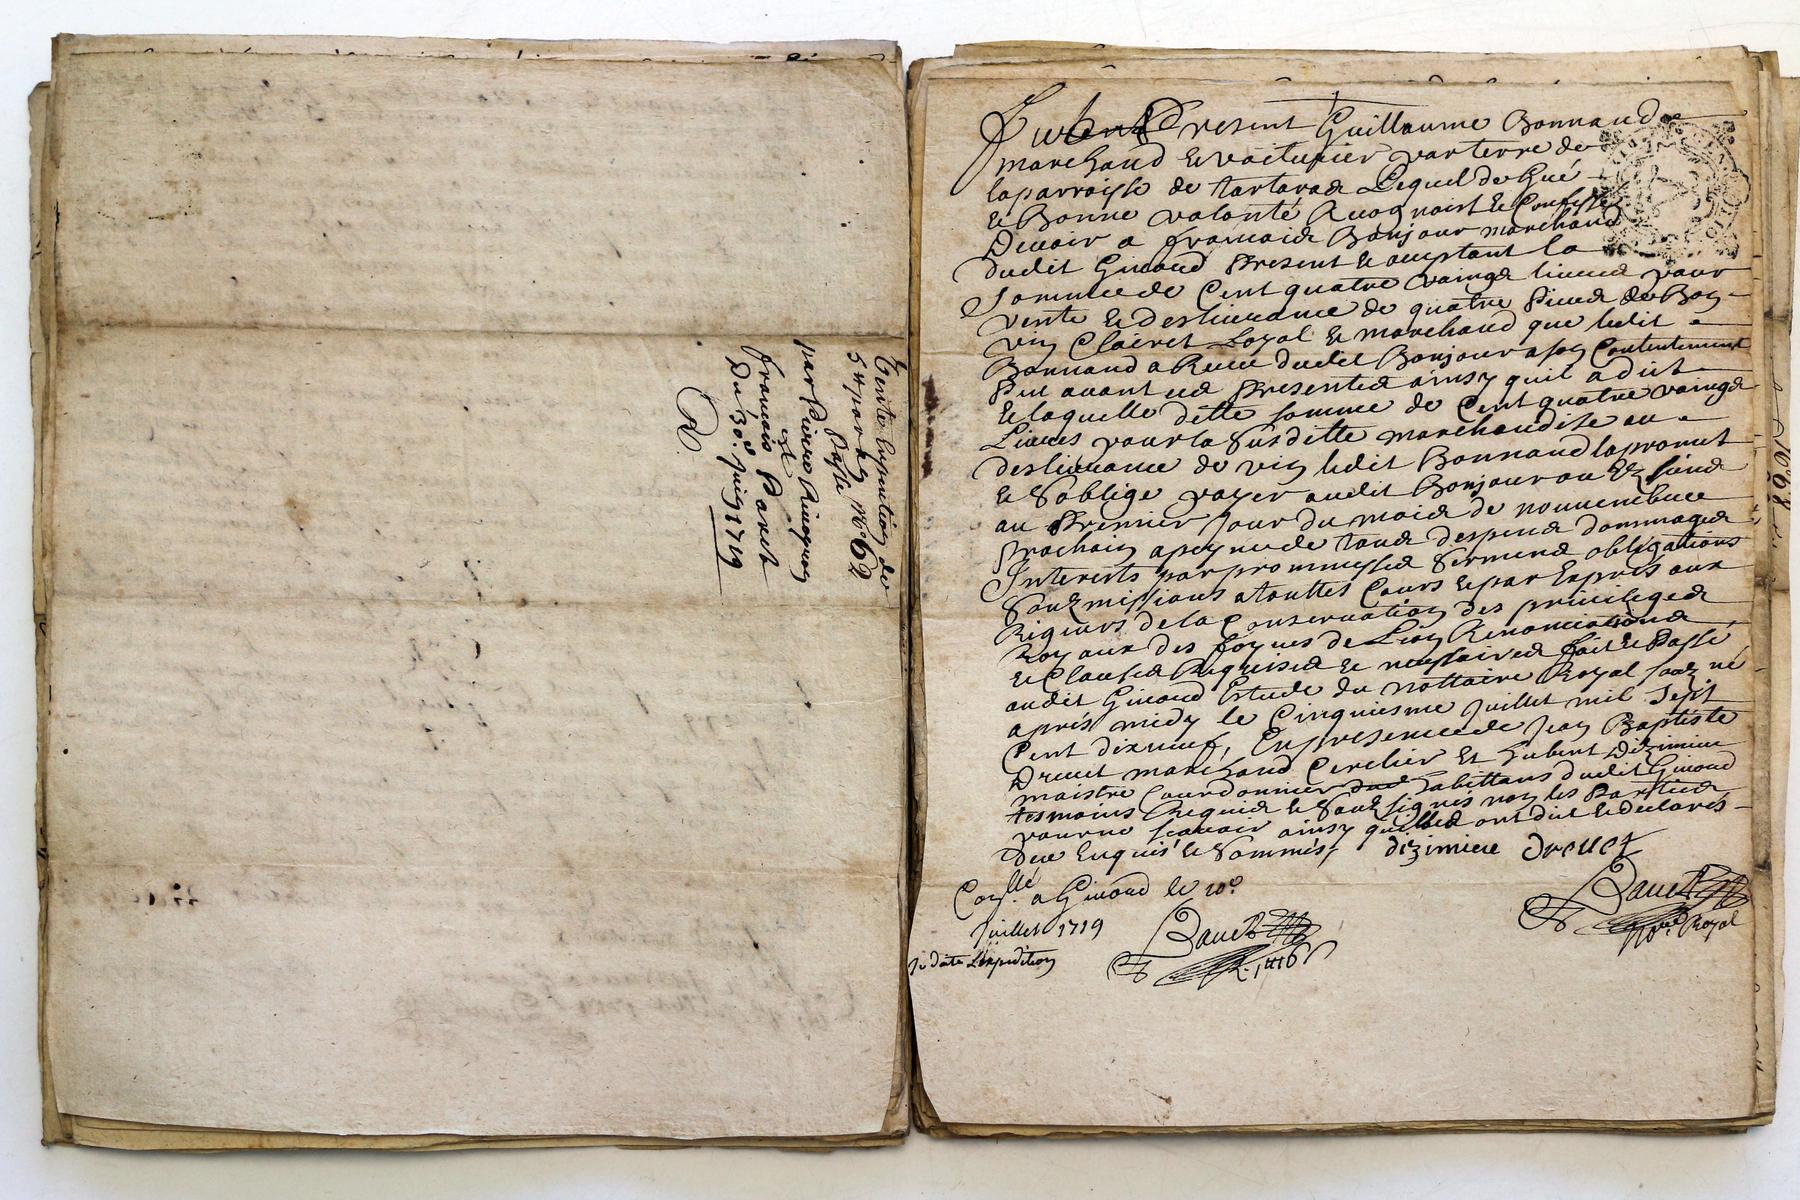 Vente Expedition des
54 par an N.o 62
passé
par Pierre
et
francois Paret
Du 30.e juin 1719
R
Fut Present Guillaume Bonnand
marchand & voiturier par terre de
laparroisse de tartaras Lequel de Gré
& Bonne volonté Recognoist & Confesse
Devoir a francois Bonjour marchand
dudit Giuord Present & aceptant la
Somme de Cent quatre vaings livres pour
vente & deslivrance de quatre Pieces de Bon
vin Clairet Loyal & marchand que ledit
Bonnand a Receu dudit Bonjour a son Contentement
Peu avant ces Presentes ainsy quil a dit
& laquelle ditte somme de Cent quatre vaings
Livres pour la Susditte marchandise ou
deslivrance de vin ledit Bonnand la promet
& Soblige payer audit Bonjour ou Ez siens
au Premier Jour du mois de nouvembre
Prochain a peyne de tous despens dommages
Interests par prommesses Serments obligations
Soubzmissions a touttes Cours & par Exprés aux
Rigeurs de la Conservation des privileges
Royaux des foyres de Lion Renonciations
& Clauses Requises & necessaires fait & Passé
audit Giuord Estude du nottaire Royal souz.né
aprés midy le Cinquiesme Juillet mil Sept
Cent dix neuf, En presence de Jean Baptiste
Drevet marchand Cerclier Et hubert Dizimieu
maistre Courdonnier habittans dudit Giuord
tesmoins Requis & Soubzsignés non les Parties
pour ne scavoir ainsy quelles ont dit & declarés
due Enquis & Sommés; dizimieu Drevet
Con.llé a Giuord le 10.e
Juillet 1719
Not.re Royal
jé daté L'expedition